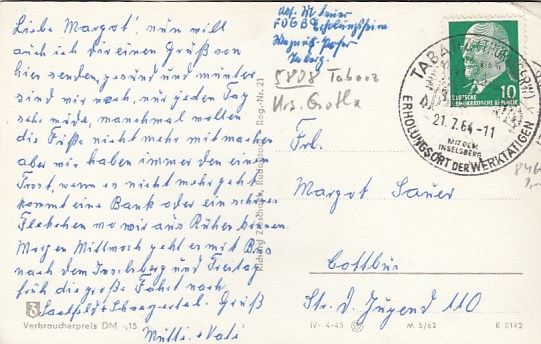 Liebe Margot, nun will
auch ich dir einen Gruß von
hier senden, gesund und munter
sind wir noch, nur jeden Tag
sehr müde, manchmal wollen
die Füße nicht mehr mitmachen
aber wir haben immer den einen
Trost, wenn es nicht mehr geht
kommt eine Bank oder ein schönes
Fleckchen wo wir aus Ruhen können.
Morgen Mittwoch geht es mit Bus
nach dem Inselsberg und Freitag
früh die große Fahrt nach
Saalfeld + Schwarzatal. Gruß
Mutti + Vati
Verbraucherpreis DM -,15
Abs. M. Sauer
FDGB Erholungsheim
Tabarz
5808 Tabarz
Krs. Gotha
Reg.-Nr. 21
TABARZ
10
DEUTSCHE
DEMOKRATISCHE REPUBLIK
21.7.64-11
MIT DEM
INSELSBERG
ERHOLUNGSORT DER WERKTÄTIGEN
Frl.
Margot Sauer
Cottbus
Str. d. Jugend 110
IV-4-45
M 5/62
K 0142